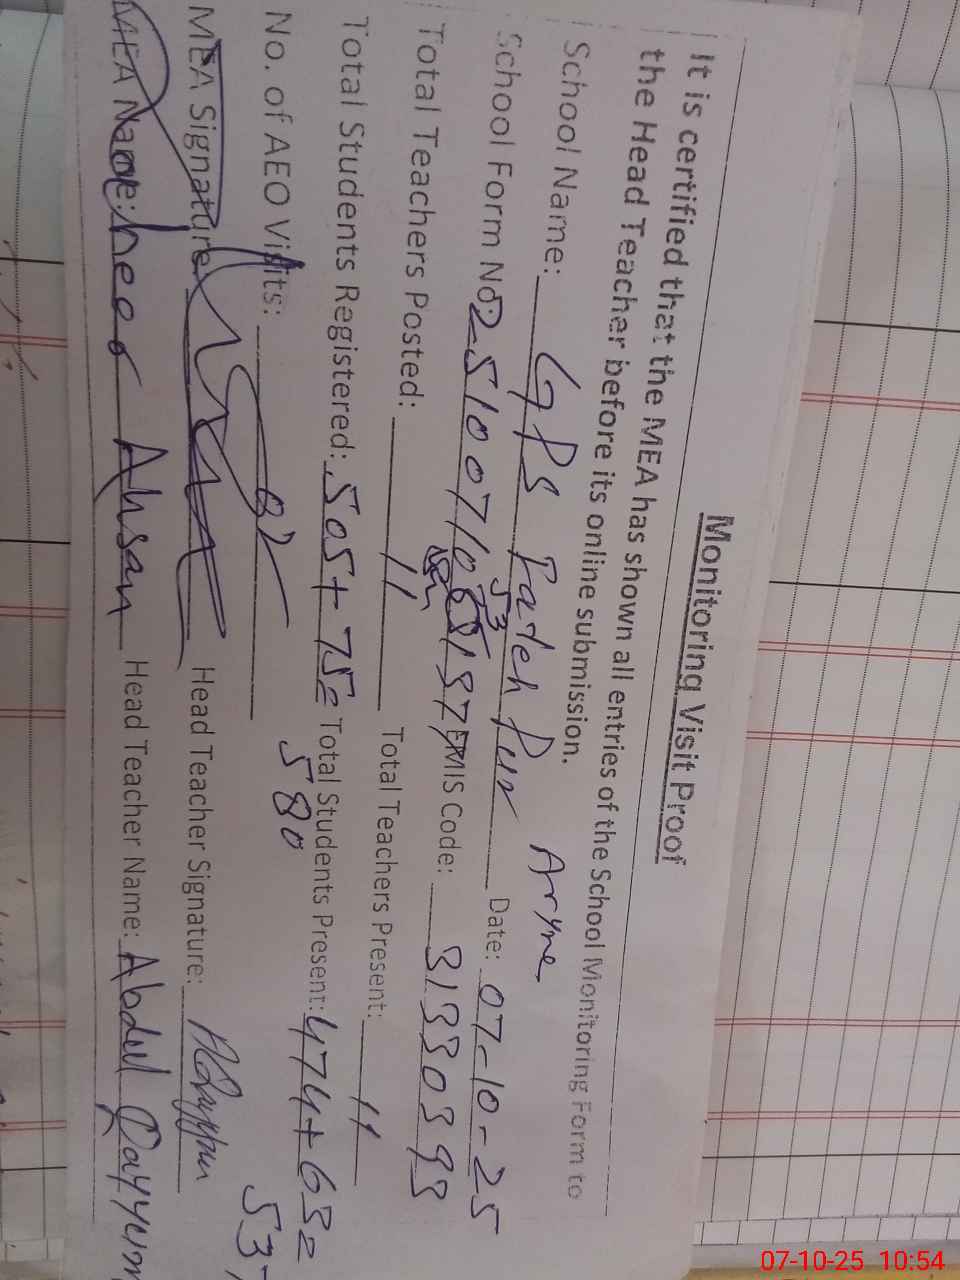 Monitoring Visit Proof
It is certified that the MEA has shown all entries of the School Monitoring Form to
the Head Teacher before its online submission.
School Name: GPS Pateh Pur Date: 07-10-25
School Form No: 25100710 53 187 EMIS Code: 31330393
Total Teachers Posted: 11 Total Teachers Present: 11
Total Students Registered: 505+75= Total Students Present: 474+63=
580 537
No. of AEO Visits: 02
MEA Signature: Head Teacher Signature:
MEA Name: Ahsan Head Teacher Name: Abdul Qayyum
07-10-25 10:54